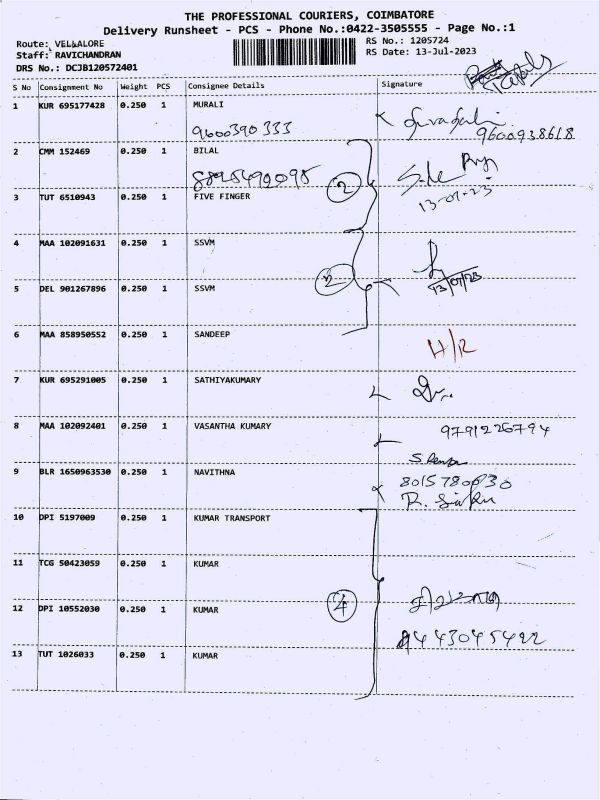 THE PROFESSIONAL COURIERS, COIMBATORE
Delivery Runsheet - PCS - Phone No.:0422-3505555 - Page No.:1
Route: VELLALORE
RS No.: 1205724
Staff: RAVICHANDRAN
RS Date: 13-Jul-2023
DRS No.: DCJB120572401
S No Consignment No Weight PCS Consignee Details Signature
1 KUR 695177428 0.250 1 MURALI
9600390333
9600938618
2 CMM 152469 0.250 1 BILAL
8825490095
2
13-07-23
3 TUT 6510943 0.250 1 FIVE FINGER
4 MAA 102091631 0.250 1 SSVM
2
13/07/23
5 DEL 901267896 0.250 1 SSVM
6 MAA 858950552 0.250 1 SANDEEP
H/R
7 KUR 695291005 0.250 1 SATHIYAKUMARY
8 MAA 102092401 0.250 1 VASANTHA KUMARY
9791226794
9 BLR 1650963530 0.250 1 NAVITHNA
8015780030
10 DPI 5197009 0.250 1 KUMAR TRANSPORT
11 TCG 50423059 0.250 1 KUMAR
12 DPI 10552030 0.250 1 KUMAR
4
9443045422
13 TUT 1026033 0.250 1 KUMAR